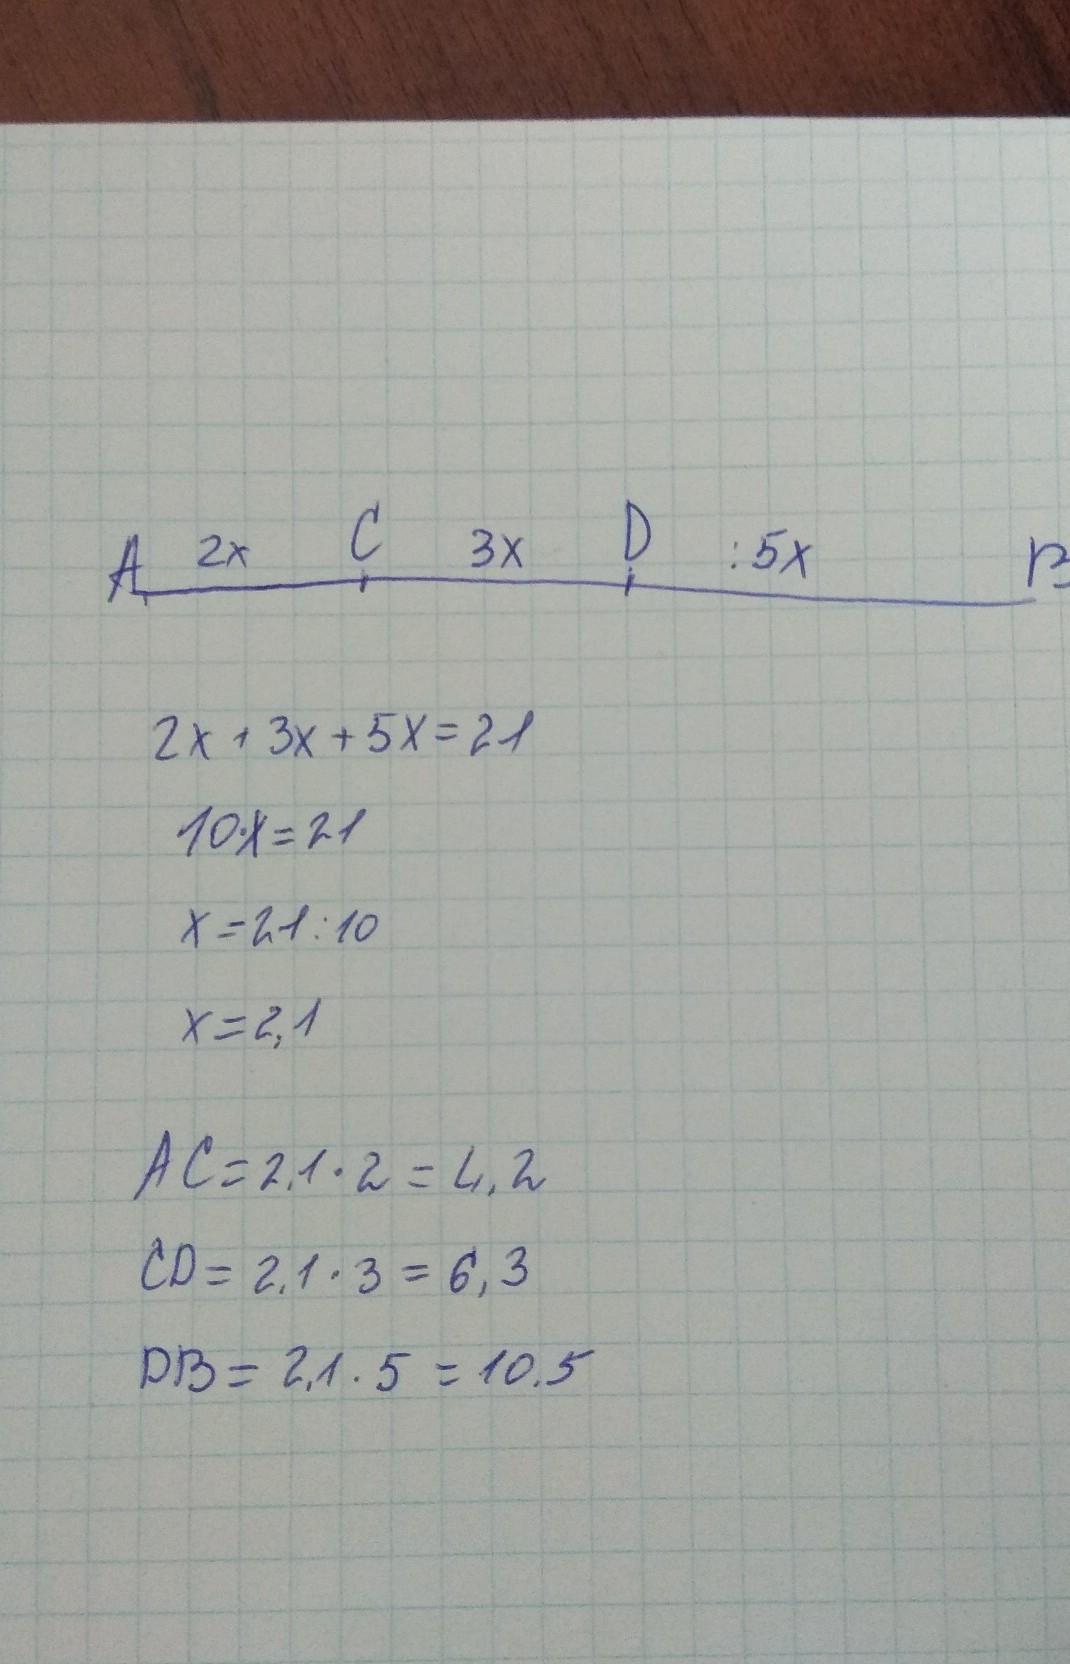 A 2x C 3x D :5x B
2x + 3x + 5x = 21
10·x = 21
x = 21 : 10
x = 2,1
AC = 2,1 · 2 = 4,2
CD = 2,1 · 3 = 6,3
DB = 2,1 · 5 = 10.5